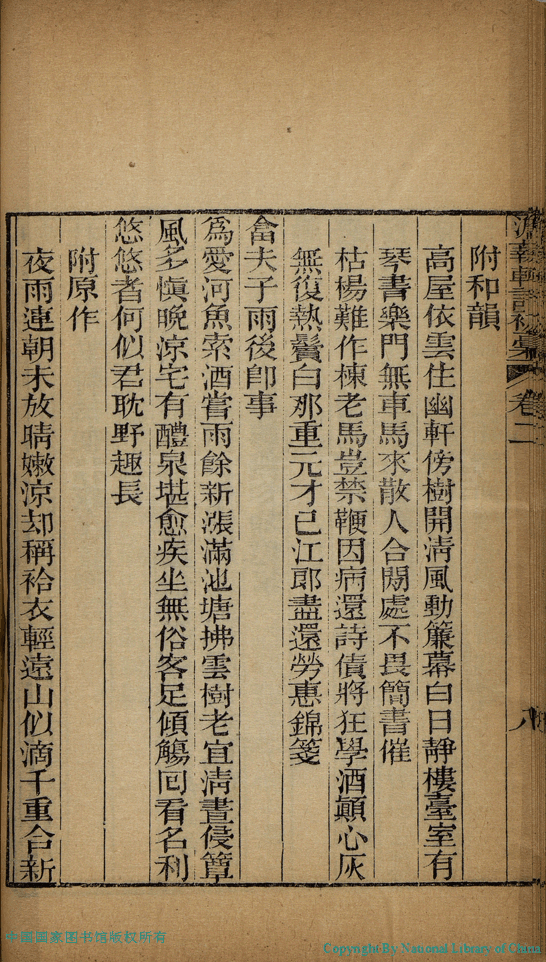 附和韻
高屋依雲住幽軒傍樹開清風動簾幕白日靜樓臺室有
琴書樂門無車馬來散人合閒處不畏簡書催
枯楊難作棟老馬豈禁鞭因病還詩債將狂學酒顛心灰
無復熱鬢白那重元才已江郎盡還勞惠錦箋
畣夫子雨後卽事
爲愛河魚索酒嘗雨餘新漲滿池塘拂雲樹老宜清晝侵簟
風多愼晩涼宅有醴泉堪愈疾坐無俗客足傾觴回看名利
悠悠者何似君耽野趣長
附原作
夜雨連朝未放晴嫩涼却稱袷衣輕遠山似滴千重合新
卷二
八
中國國家图书馆版权所有
Copyright By National Library of China